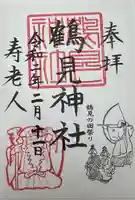 奉拝
鶴見神社
令和二年二月十一日
寿老人
鶴見の田祭り